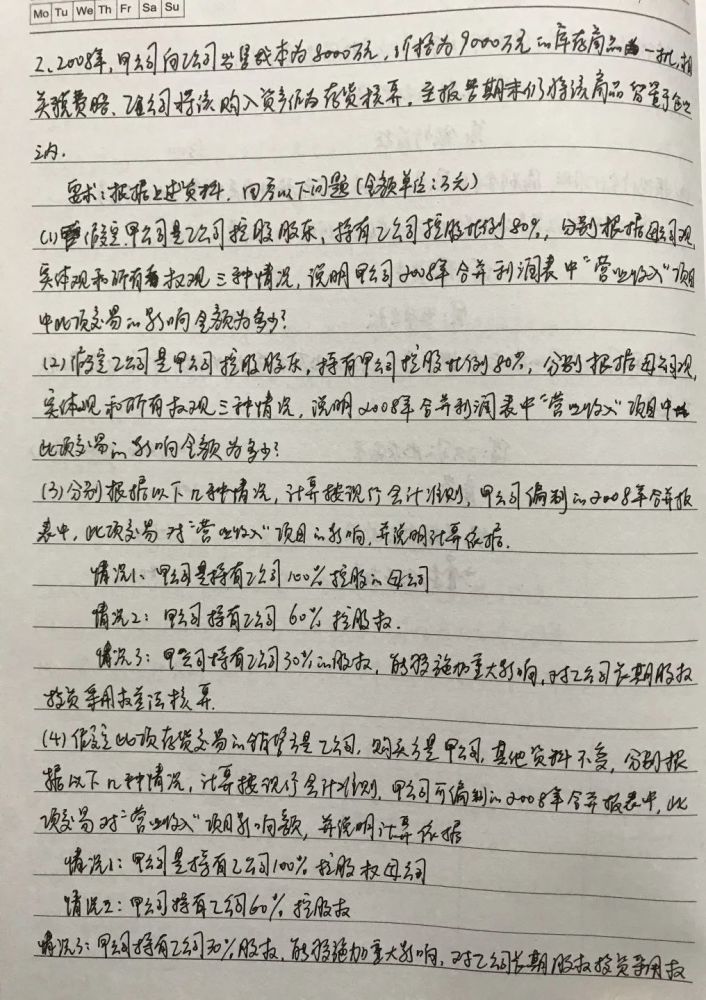 Mo Tu We Th Fr Sa Su
2、2008年,甲公司向乙公司出售成本为8000万元,价格为9000万元的库存商品一批,相
关税费略、乙公司将该购入资产仍为存货核算,至报告期末仍将该商品留置于企业
之内.
要求:根据上述资料,回答以下问题(金额单位:万元)
(1)假定甲公司是乙公司控股股东,持有乙公司控股比例80%,分别根据母公司观,
实体观和所有权观三种情况,说明甲公司2008年合并利润表中“营业收入”项目
中此项交易的影响金额为多少?
(2)假定乙公司是甲公司控股股东,持有甲公司控股比例80%,分别根据母公司观,
实体观和所有权观三种情况,说明2008年合并利润表中“营业收入”项目中
此项交易的影响金额为多少?
(3)分别根据以下几种情况,计算按现行会计准则,甲公司编制的2008年合并报
表中,此项交易对“营业收入”项目的影响,并说明计算依据.
情况1:甲公司是持有乙公司100%控股的母公司
情况2:甲公司持有乙公司60%控股权.
情况3:甲公司持有乙公司30%的股权,能够施加重大影响,对乙公司长期股权
投资采用权益法核算.
(4)假定此项存货交易的销售方是乙公司,购买方是甲公司,其他资料不变,分别根
据以下几种情况,计算按现行会计准则,甲公司可编制的2008年合并报表中,此
项交易对“营业收入”项目影响额,并说明计算依据
情况1:甲公司是持有乙公司100%控股权母公司
情况2:甲公司持有乙公司60%控股权
情况3:甲公司持有乙公司30%股权,能够施加重大影响,对乙公司长期股权投资采用权